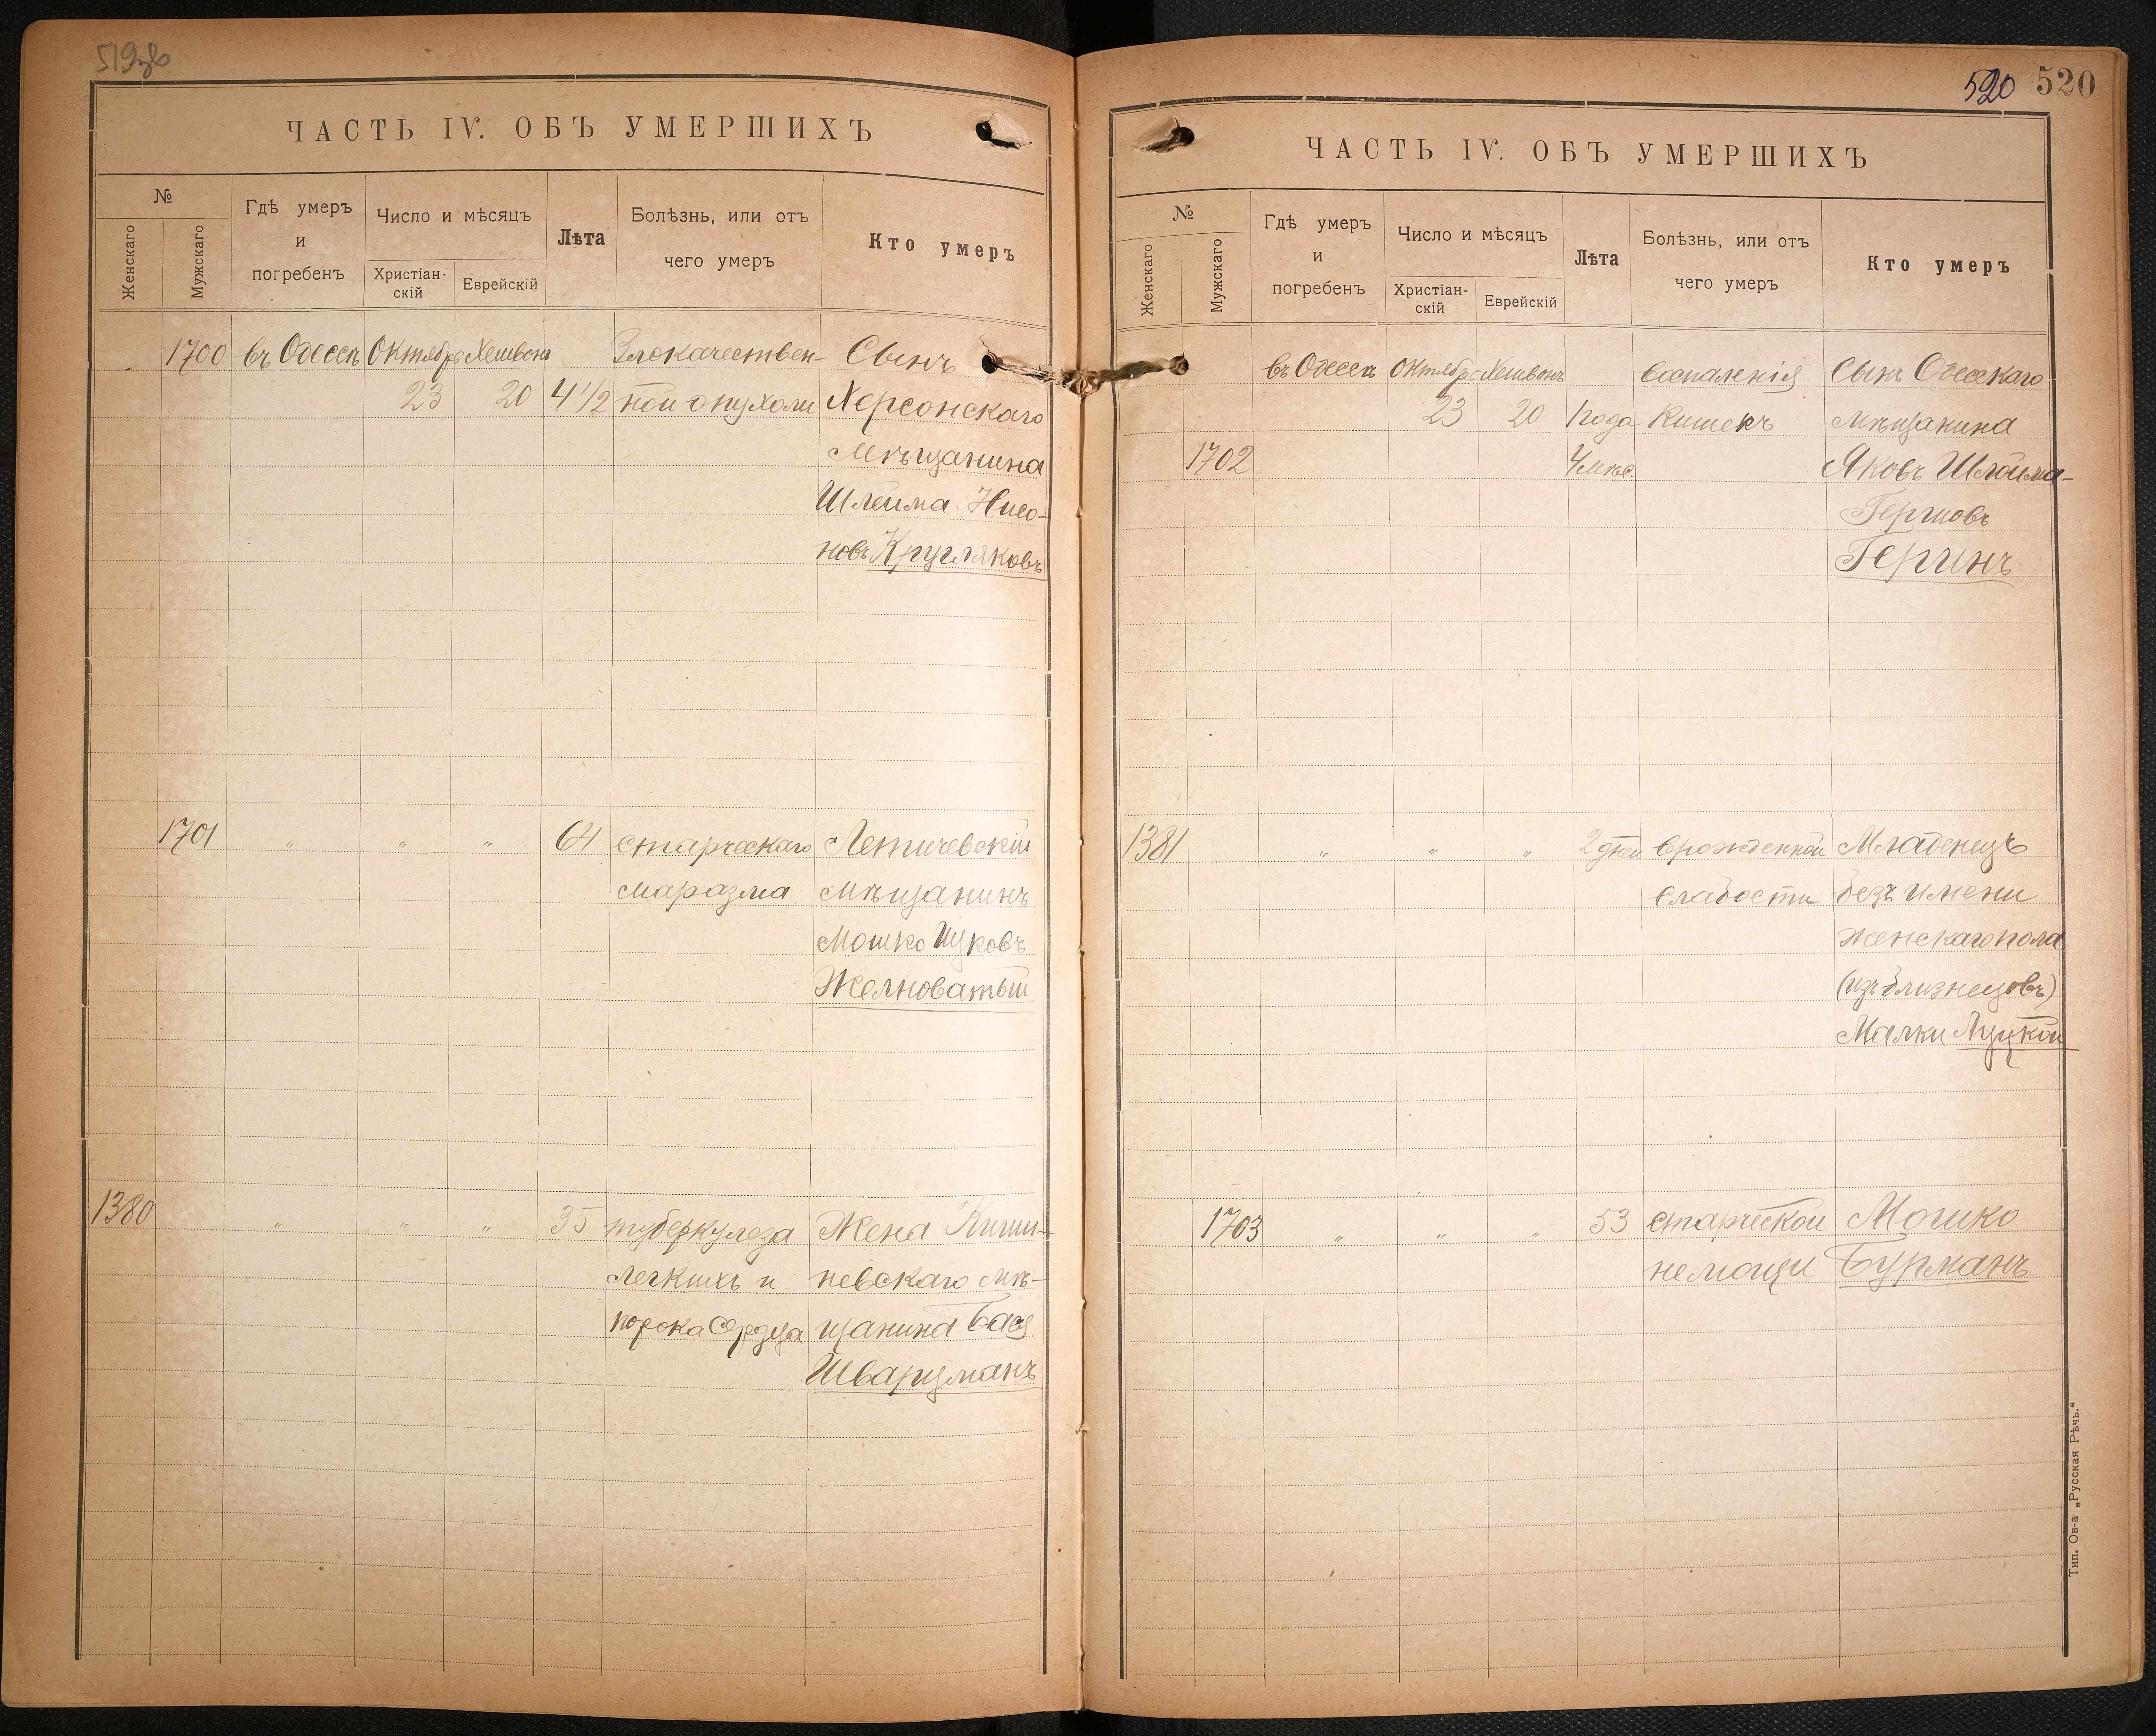 519зв
ЧАСТЬ IV. ОБЪ УМЕРШИХЪ
№
Женскаго
Мужскаго
Гдѣ умеръ
и
погребенъ
Число и мѣсяцъ
Христіан-
скій
Еврейскій
Лѣта
Болѣзнь, или отъ
чего умеръ
Кто умеръ
1700 въ Одессѣ Октября Хешвонъ Злокачествен- Сынъ
23 20 4 1/2 ной опухоли Херсонскаго
Мѣщанина
Шлейма Нисо-
новъ Кругляковъ
1701 " " " 64 старческаго Летичевскій
маразма мѣщанинъ
Мошко Ицковъ
Желноватый
1380 " " " 35 туберкулеза Жена Киши-
легкихъ и невскаго мѣ-
порока сердца щанина Бася
Шварцманъ
520 520
ЧАСТЬ IV. ОБЪ УМЕРШИХЪ
№
Женскаго
Мужскаго
Гдѣ умеръ
и
погребенъ
Число и мѣсяцъ
Христіан-
скій
Еврейскій
Лѣта
Болѣзнь, или отъ
чего умеръ
Кто умеръ
въ Одессѣ Октября Хешвонъ воспаленія Сынъ Одесскаго
23 20 1 года кишекъ мѣщанина
1702 4 мѣс. Яковъ Шлойма-
Гершовъ
Гершнъ
1381 " " " 2 дней врожденной Младенецъ
слабости безъ имени
женскаго пола
(изъ близнецовъ)
Малки Луцкой
1703 " " " 53 старческой Мошко
немощи Бурманъ
Тип. Ов-а „Русская Рѣчь.“